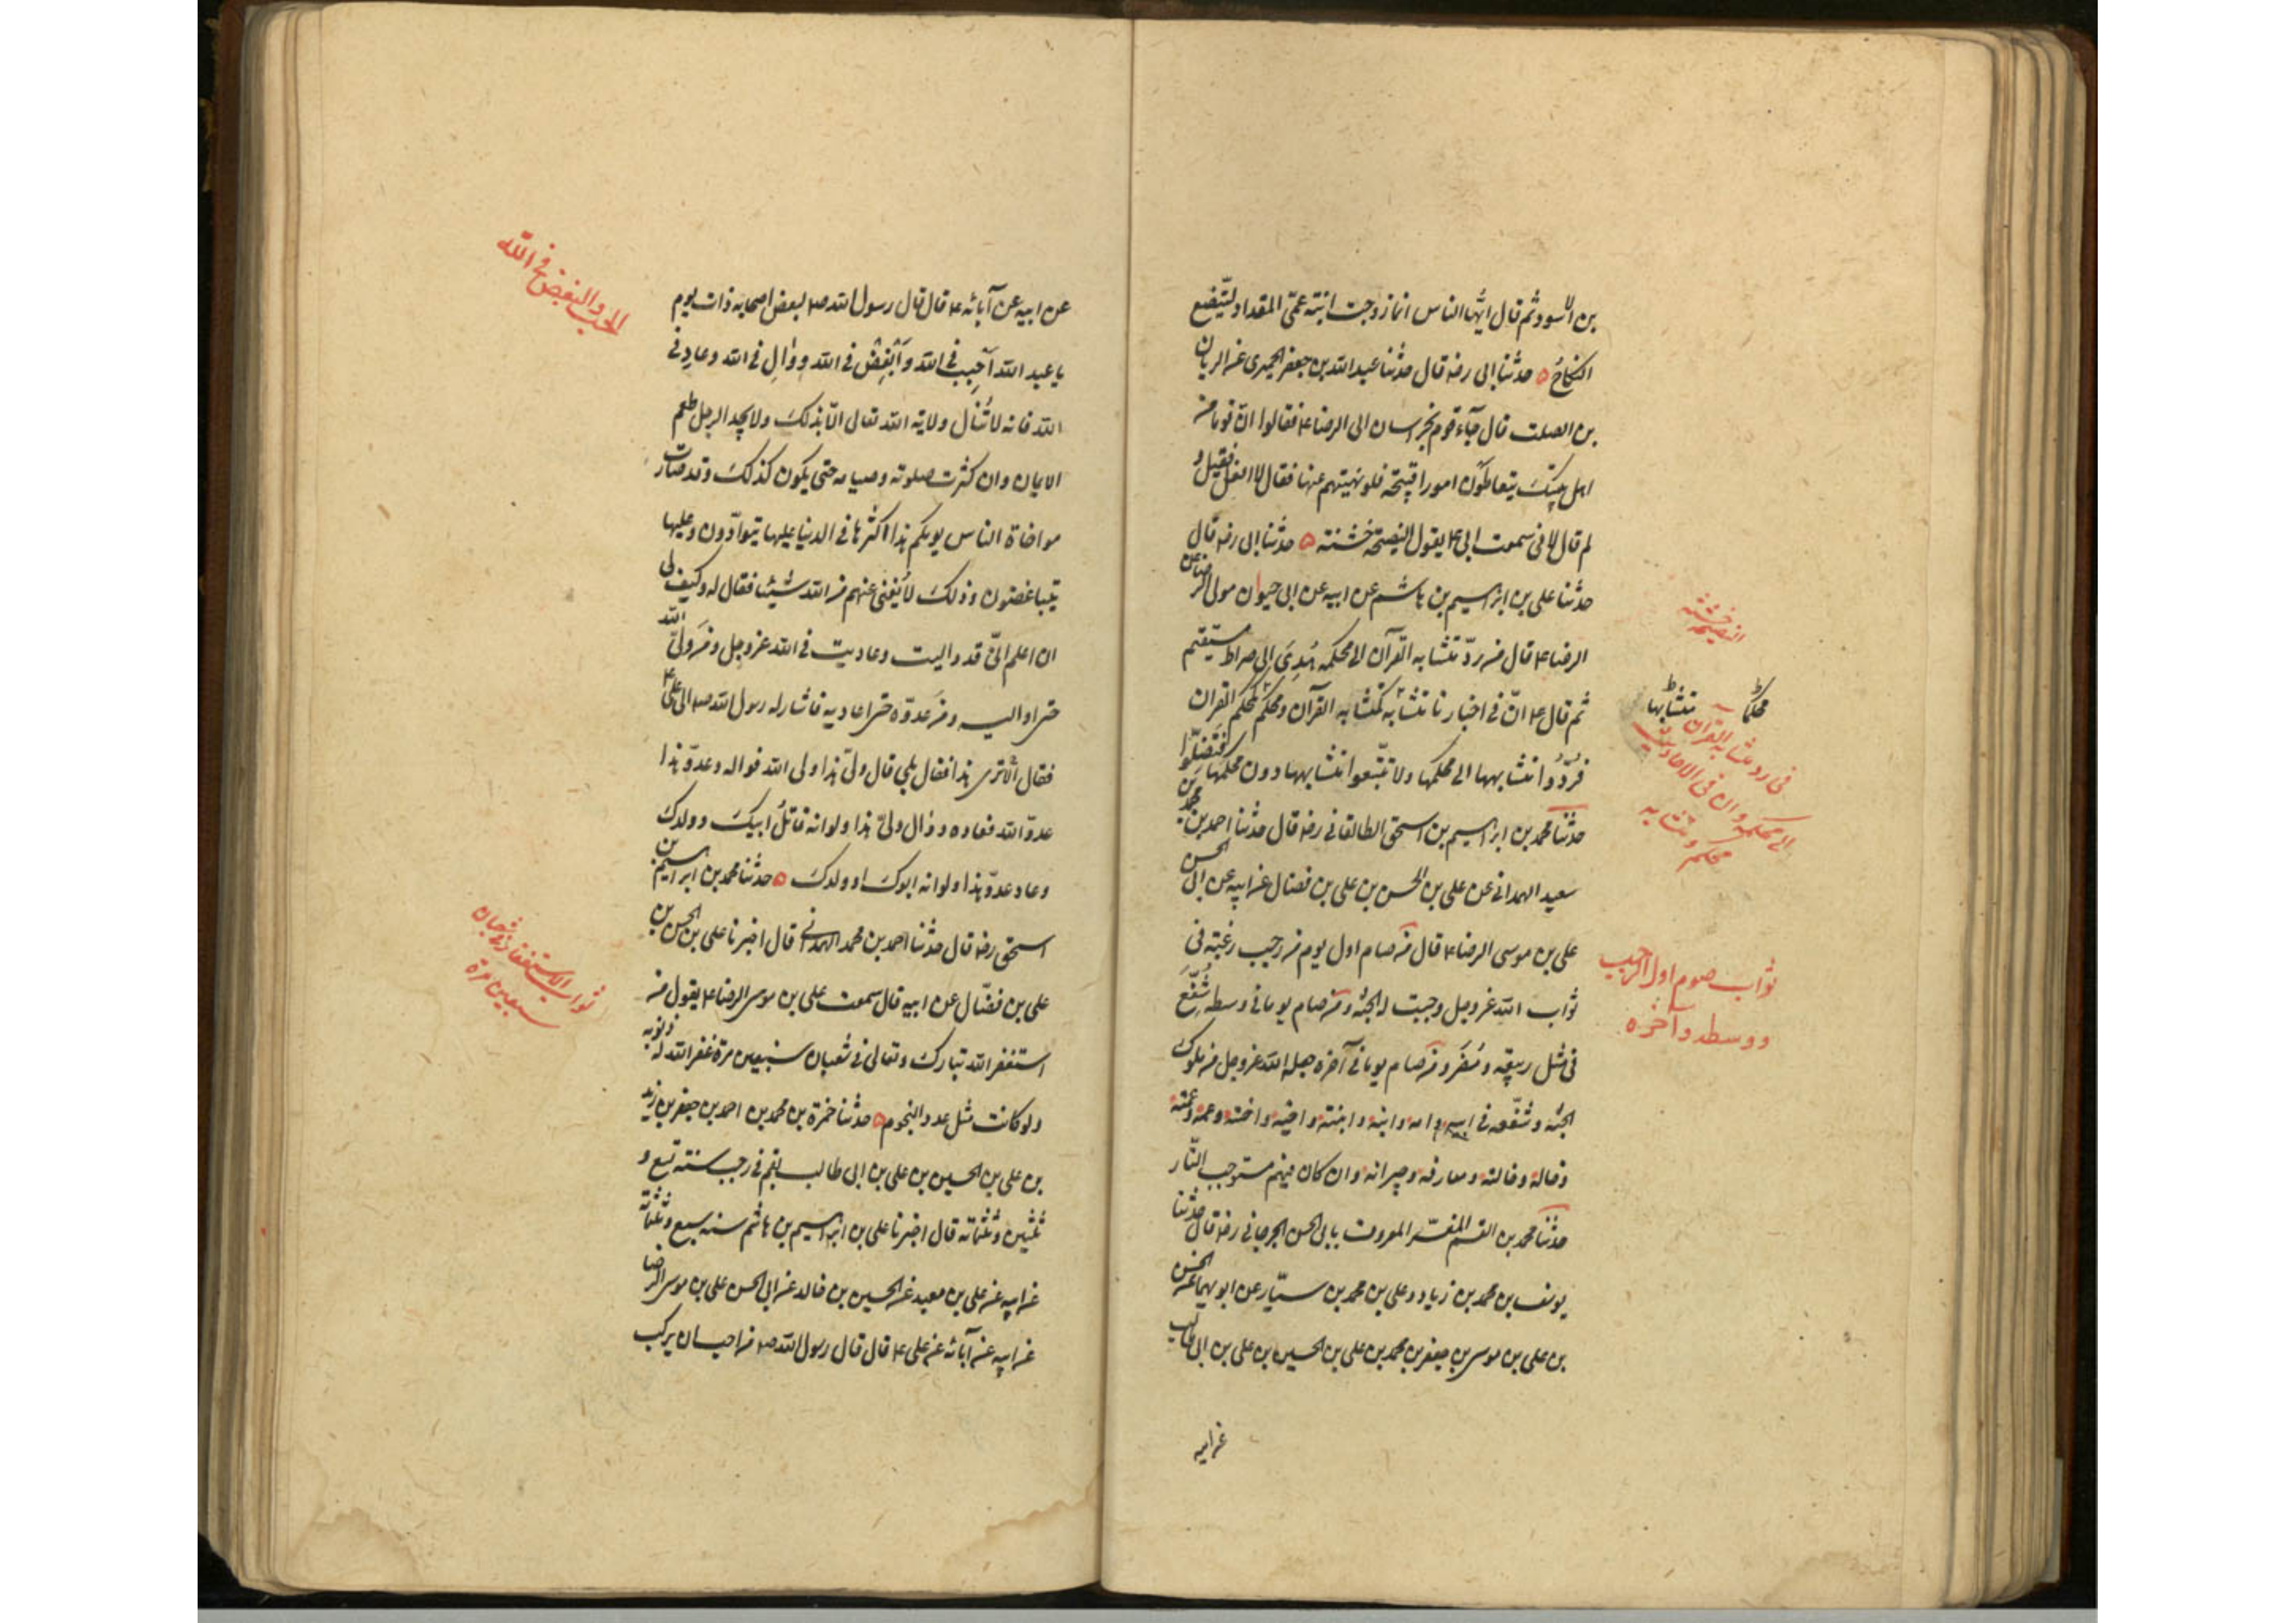 بن الاسود ثم قال ايّها الناس انما زوجت ابنة عمّى المقداد ليتّضع
النكاح ۵ حدثنا ابى رضه قال حدثنا عبد الله بن جعفر الحميرى عن الريان
بن الصلت قال جآء قوم بخراسان الى الرضا ع فقالوا انّ قوما من
اهل بيتك يتعاطون امورا قبيحة فلو نهيتهم عنها فقال لا افعل فقيل و
لم قال لانى سمعت ابى ع يقول النصيحة خشنة ۵ حدثنا ابى رضه قال
حدثنا على بن ابراهيم بن هاشم عن ابيه عن ابى حيوان مولى الرضا عن
الرضا ع قال من ردّ متشابه القرآن الى محكمه هُدِىَ الى صراط مستقيم
ثم قال ع انّ فى اخبارنا متشابه كمتشابه القرآن ومحكم كمحكم القران
فرُدّوا متشابهها الى محكمها ولا تتّبعوا متشابهها دون محكمها فتضلّوا
حدثنا محمد بن ابراهيم بن اسحق الطالقانى رضه قال حدثنا احمد بن محمد بن
سعيد الهمدانى عن على بن الحسن بن على بن فضال عن ابيه عن ابى الحسن
على بن موسى الرضا ع قال من صام اول يوم من رجب رغبة فى
ثواب الله عز وجل وجبت له الجنة ومن صام يوما فى وسطه شُفّعَ
فى مثل ربيعة ومُضَر ومن صام يوما فى آخره جعله الله عز وجل من ملوك
الجنة وشفّعه فى ابيه وامه وابنه وابنته واخيه واخته وعمه وعمته
وخاله وخالته ومعارفه وجيرانه وان كان فيهم مستوجب النّار
حدثنا محمد بن القسم المفسّر المعروف بابى الحسن الجرجانى رضه قال حدثنا
يوسف بن محمد بن زياد وعلى بن محمد بن سيّار عن ابويهما عن الحسن
بن على بن موسى بن جعفر بن محمد بن على بن الحسين بن على بن ابى طالب
عن ابيه
النصيحة خشنة
محكما متشابها
فى رد متشابه القرآن
الى محكمه وان فى الاحاديث
محكم ومتشابه
ثواب صوم اول الرجب
ووسطه وآخره
عن ابيه عن آبائه ع قال قال رسول الله ص لبعض اصحابه ذات يوم
يا عبد الله آحبِب فى الله وَاَبْغِضْ فى الله ووالِ فى الله وعادِ فى
الله فانه لا تُنال ولاية الله تعالى الّا بذلك ولا يجد الرجل طعم
الايمان وان كثرت صلوته وصيامه حتى يكون كذلك وقد صارت
مواخاة الناس يومكم هذا اكثرها فى الدنيا عليها يتوآدّون وعليها
يتباغضون وذلك لا يُغنى عنهم من الله شيئا فقال له وكيف لى
ان اعلم انّى قد واليت وعاديت فى الله عز وجل ومن ولىّ الله
حتى اواليه ومن عدوّه حتى اعاديه فاشار له رسول الله ص الى على ع
فقال ألا ترى هذا فقال بلى قال ولىّ هذا ولى الله فواله وعدوّ هذا
عدوّ الله فعاده ووال ولىّ هذا ولو انه قاتلُ ابيك وولدك
وعاد عدوّ هذا ولو انه ابوك او ولدك ۵ حدثنا محمد بن ابراهيم بن
اسحق رضه قال حدثنا احمد بن محمد الهمدانى قال اخبرنا على بن الحسن بن
على بن فضّال عن ابيه قال سمعت على بن موسى الرضا ع يقول من
استغفر الله تبارك وتعالى فى شعبان سبعين مرة غفر الله له ذنوبه
ولو كانت مثل عدد النجوم ۵ حدثنا حمزة بن محمد بن احمد بن جعفر بن زيد
بن على بن الحسين بن على بن ابى طالب بقم فى رجب سنة تسع و
ثلثين وثلثمائة قال اخبرنا على بن ابراهيم بن هاشم سنه سبع وثلثمائة
عن ابيه عن على بن معبد عن الحسين بن خالد عن ابى الحسن على بن موسى الرضا
عن ابيه عن آبائه عن على ع قال قال رسول الله ص من احب ان يركب
الحب والبغض فى الله
ثواب الاستغفار فى شعبان
سبعين مرة